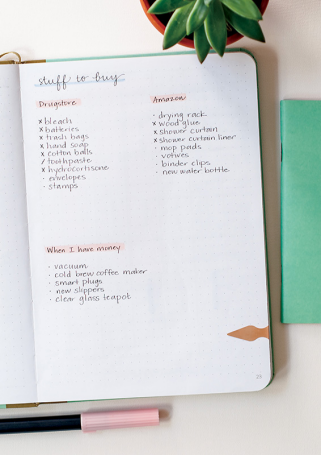 stuff to buy
Drugstore
x bleach
x batteries
x trash bags
x hand soap
x cotton balls
/ toothpaste
x hydrocortisone
· envelopes
· stamps
Amazon
· drying rack
x wood glue
x shower curtain
x shower curtain liner
· mop pads
· votives
· binder clips
· new water bottle
When I have money
· vacuum
· cold brew coffee maker
· smart plugs
· new slippers
· clear glass teapot